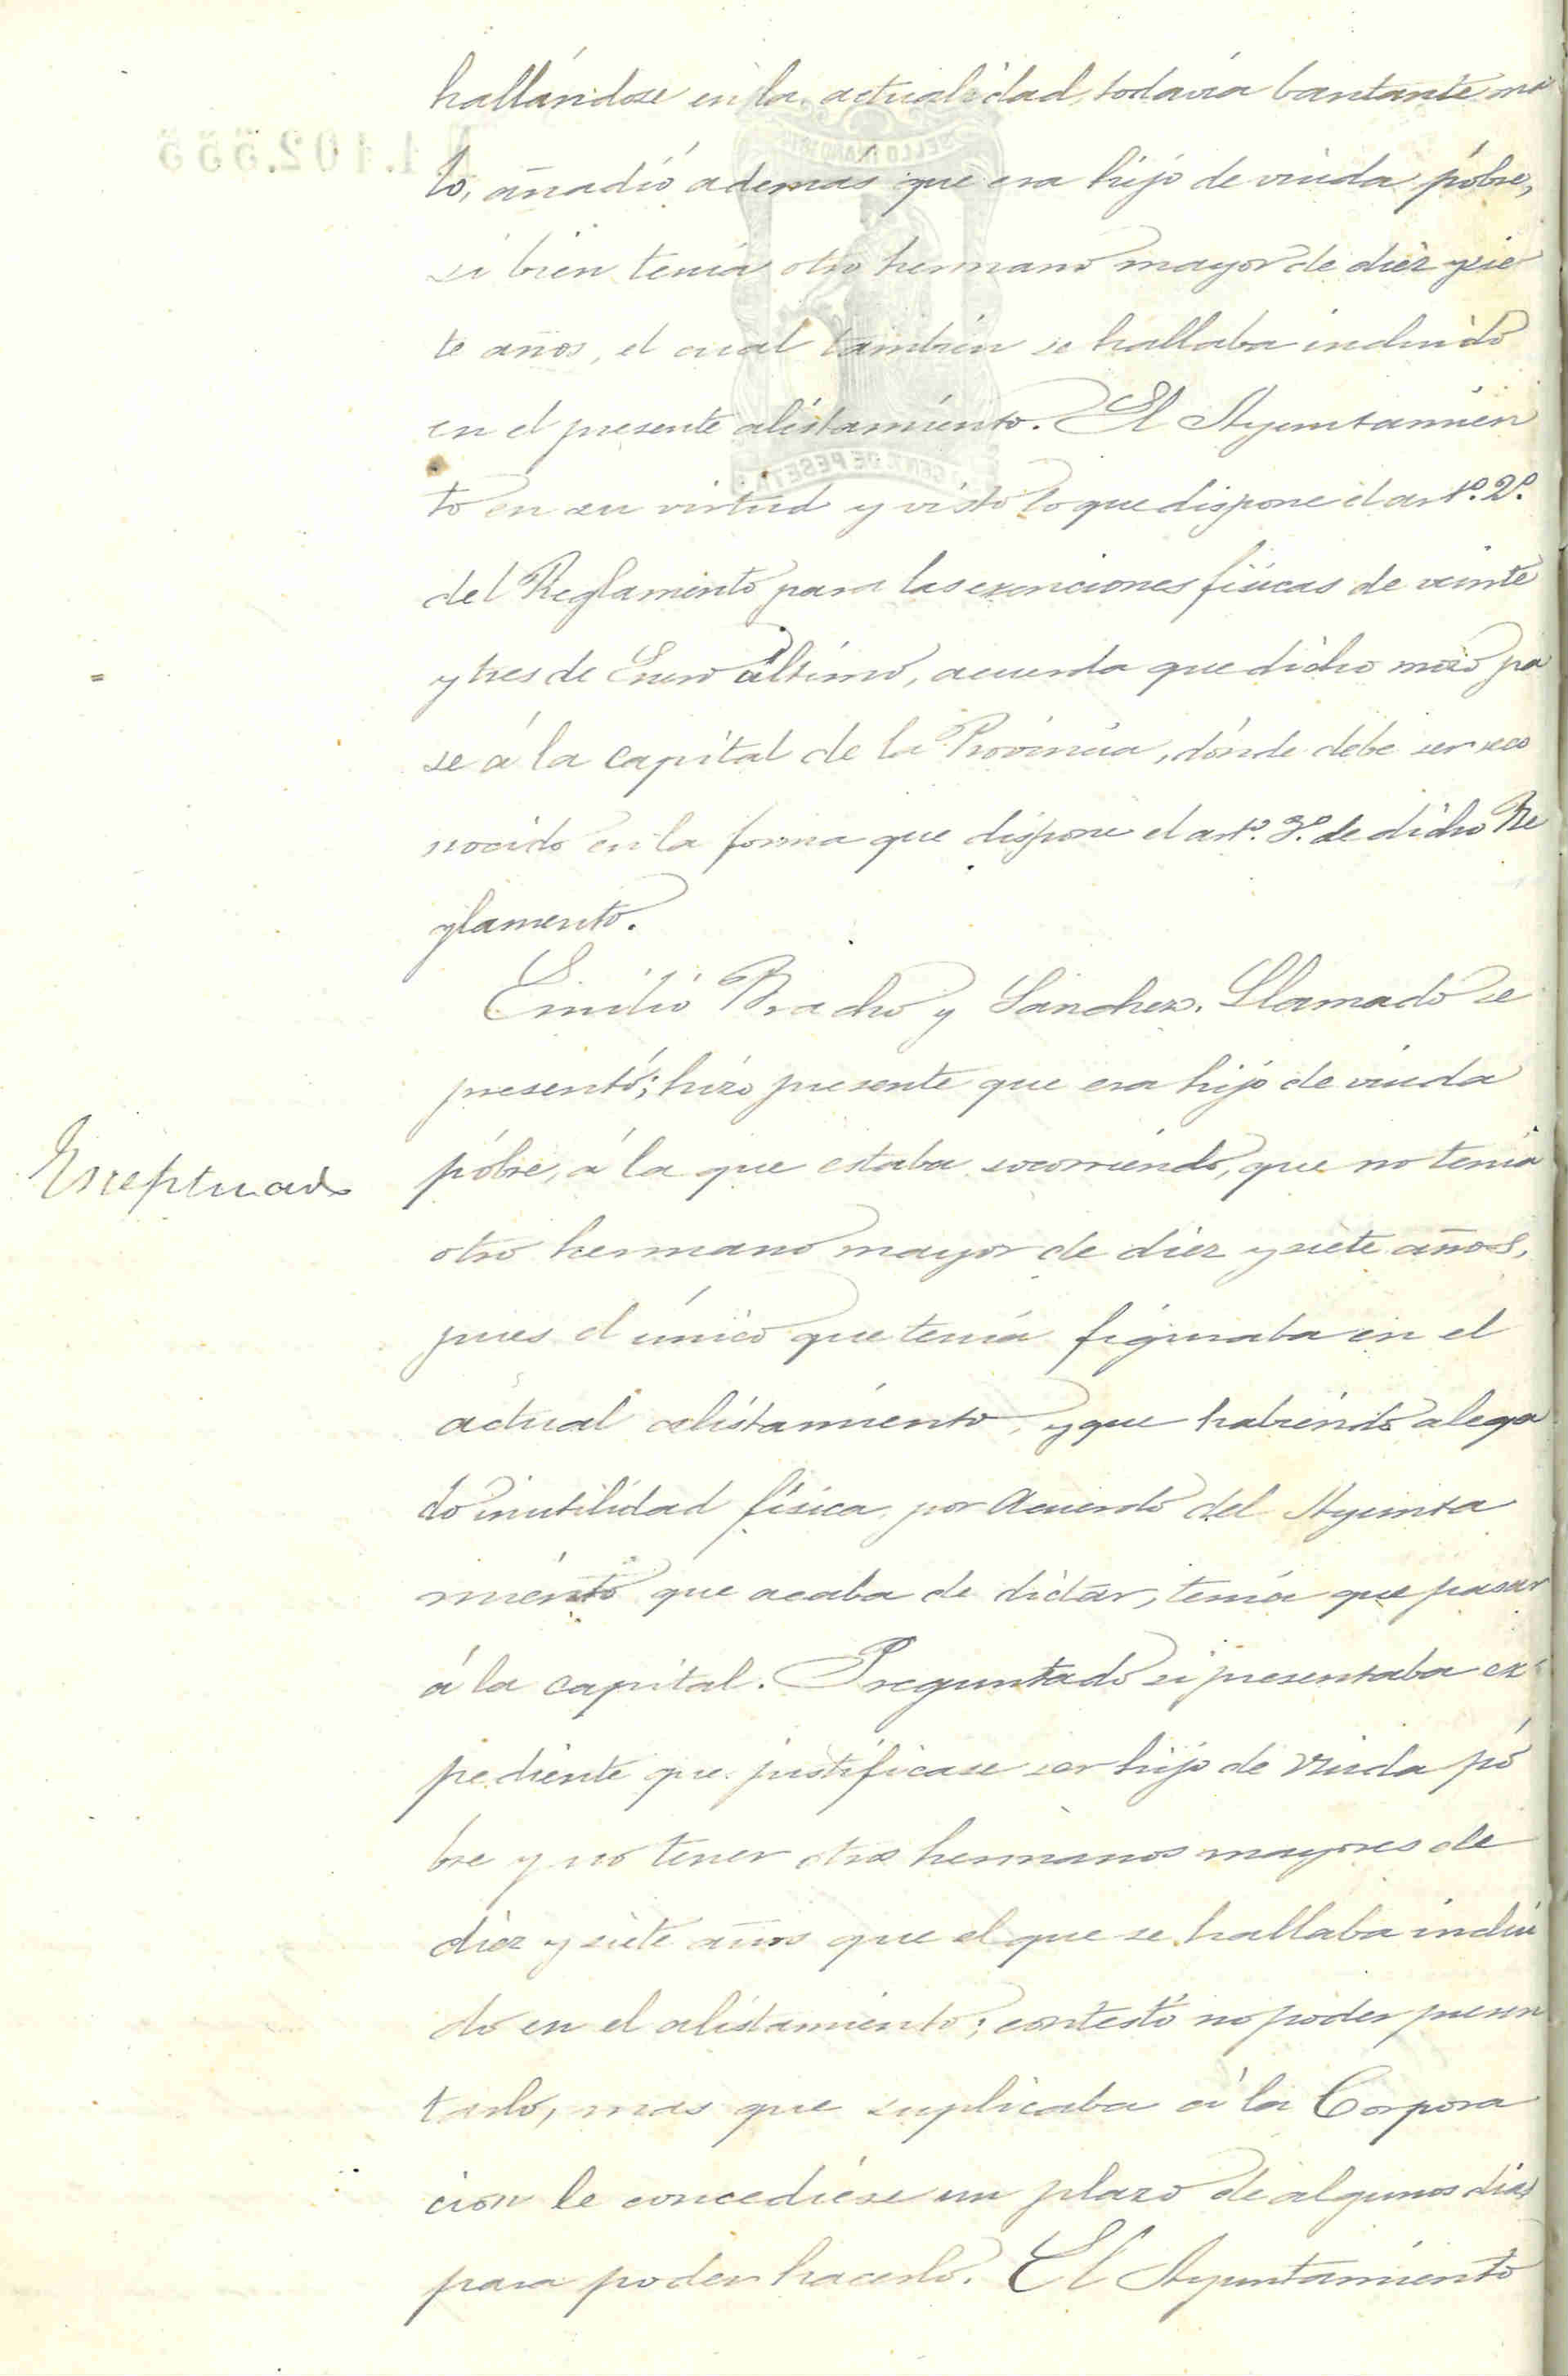 hallándose en la actualidad todavía bantante ma
lo, añadió además que era hijo de viuda póbre,
si bien tenía otro hermano mayor de diez y sie
te años, el cual también se hallaba incluido
en el presente alistamiento. El Ayuntamien
to en su virtud y visto lo que dispone el artº. 2º.
del Reglamento para las exenciones físicas de veinte
y tres de Enero último, acuerda que dicho mozo pa
se á la capital de la Provincia, dónde debe ser reco
nocido en la forma que dispone el artº. de dicho Re
glamento.
Emilio Bracho y Sanchez. Llamado se
presentó; hizo presente que era hijo de viuda
Esceptuado
póbre, á la que estaba socorriendo, que no tenía
otro hermano mayor de diez y siete años,
pues el único que tenía figuraba en el
actual alistamiento, y que habiendo alega
do inutilidad física, por Acuerdo del Ayunta
miento que acaba de dictar, tenía que pasar
á la capital. Preguntado si presentaba ex
pediente que justificase ser hijo de viuda pó
bre y no tener otros hermanos mayores de
diez y siete años que el que se hallaba inclui
do en el alistamiento; contestó no poder presen
tarlo, mas que suplicaba á la Corpora
cion le concediése un plazo de algunos dias
para poder hacerlo. El Ayuntamiento